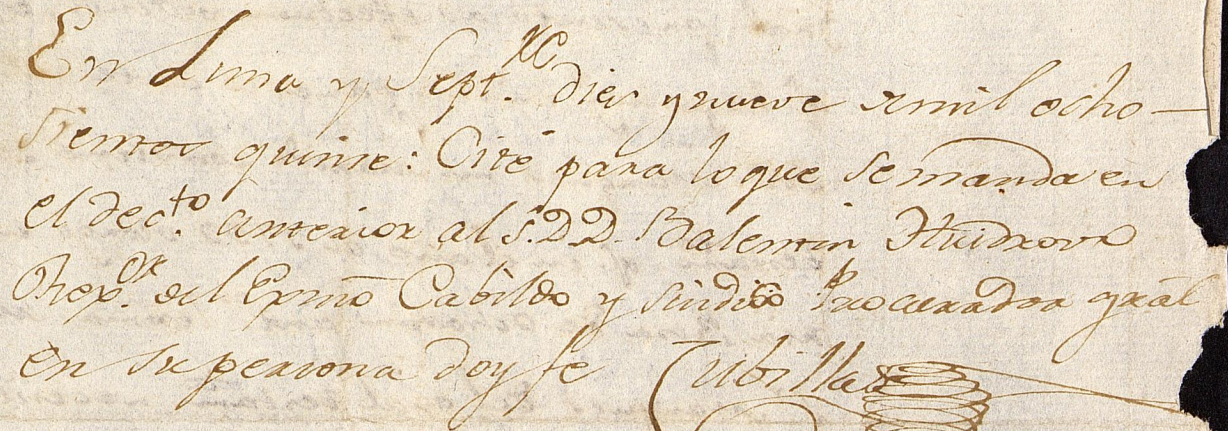 En Lima y Sept.re dies y nueve de mil ocho-
sientos quinse: Cité para lo que se manda en
el dec.to anterior al S. D. D. Balentin Huidrovro
Rex.or del Exmô Cabildo y sindico Procurador gral
en su persona doy fe Cubillas